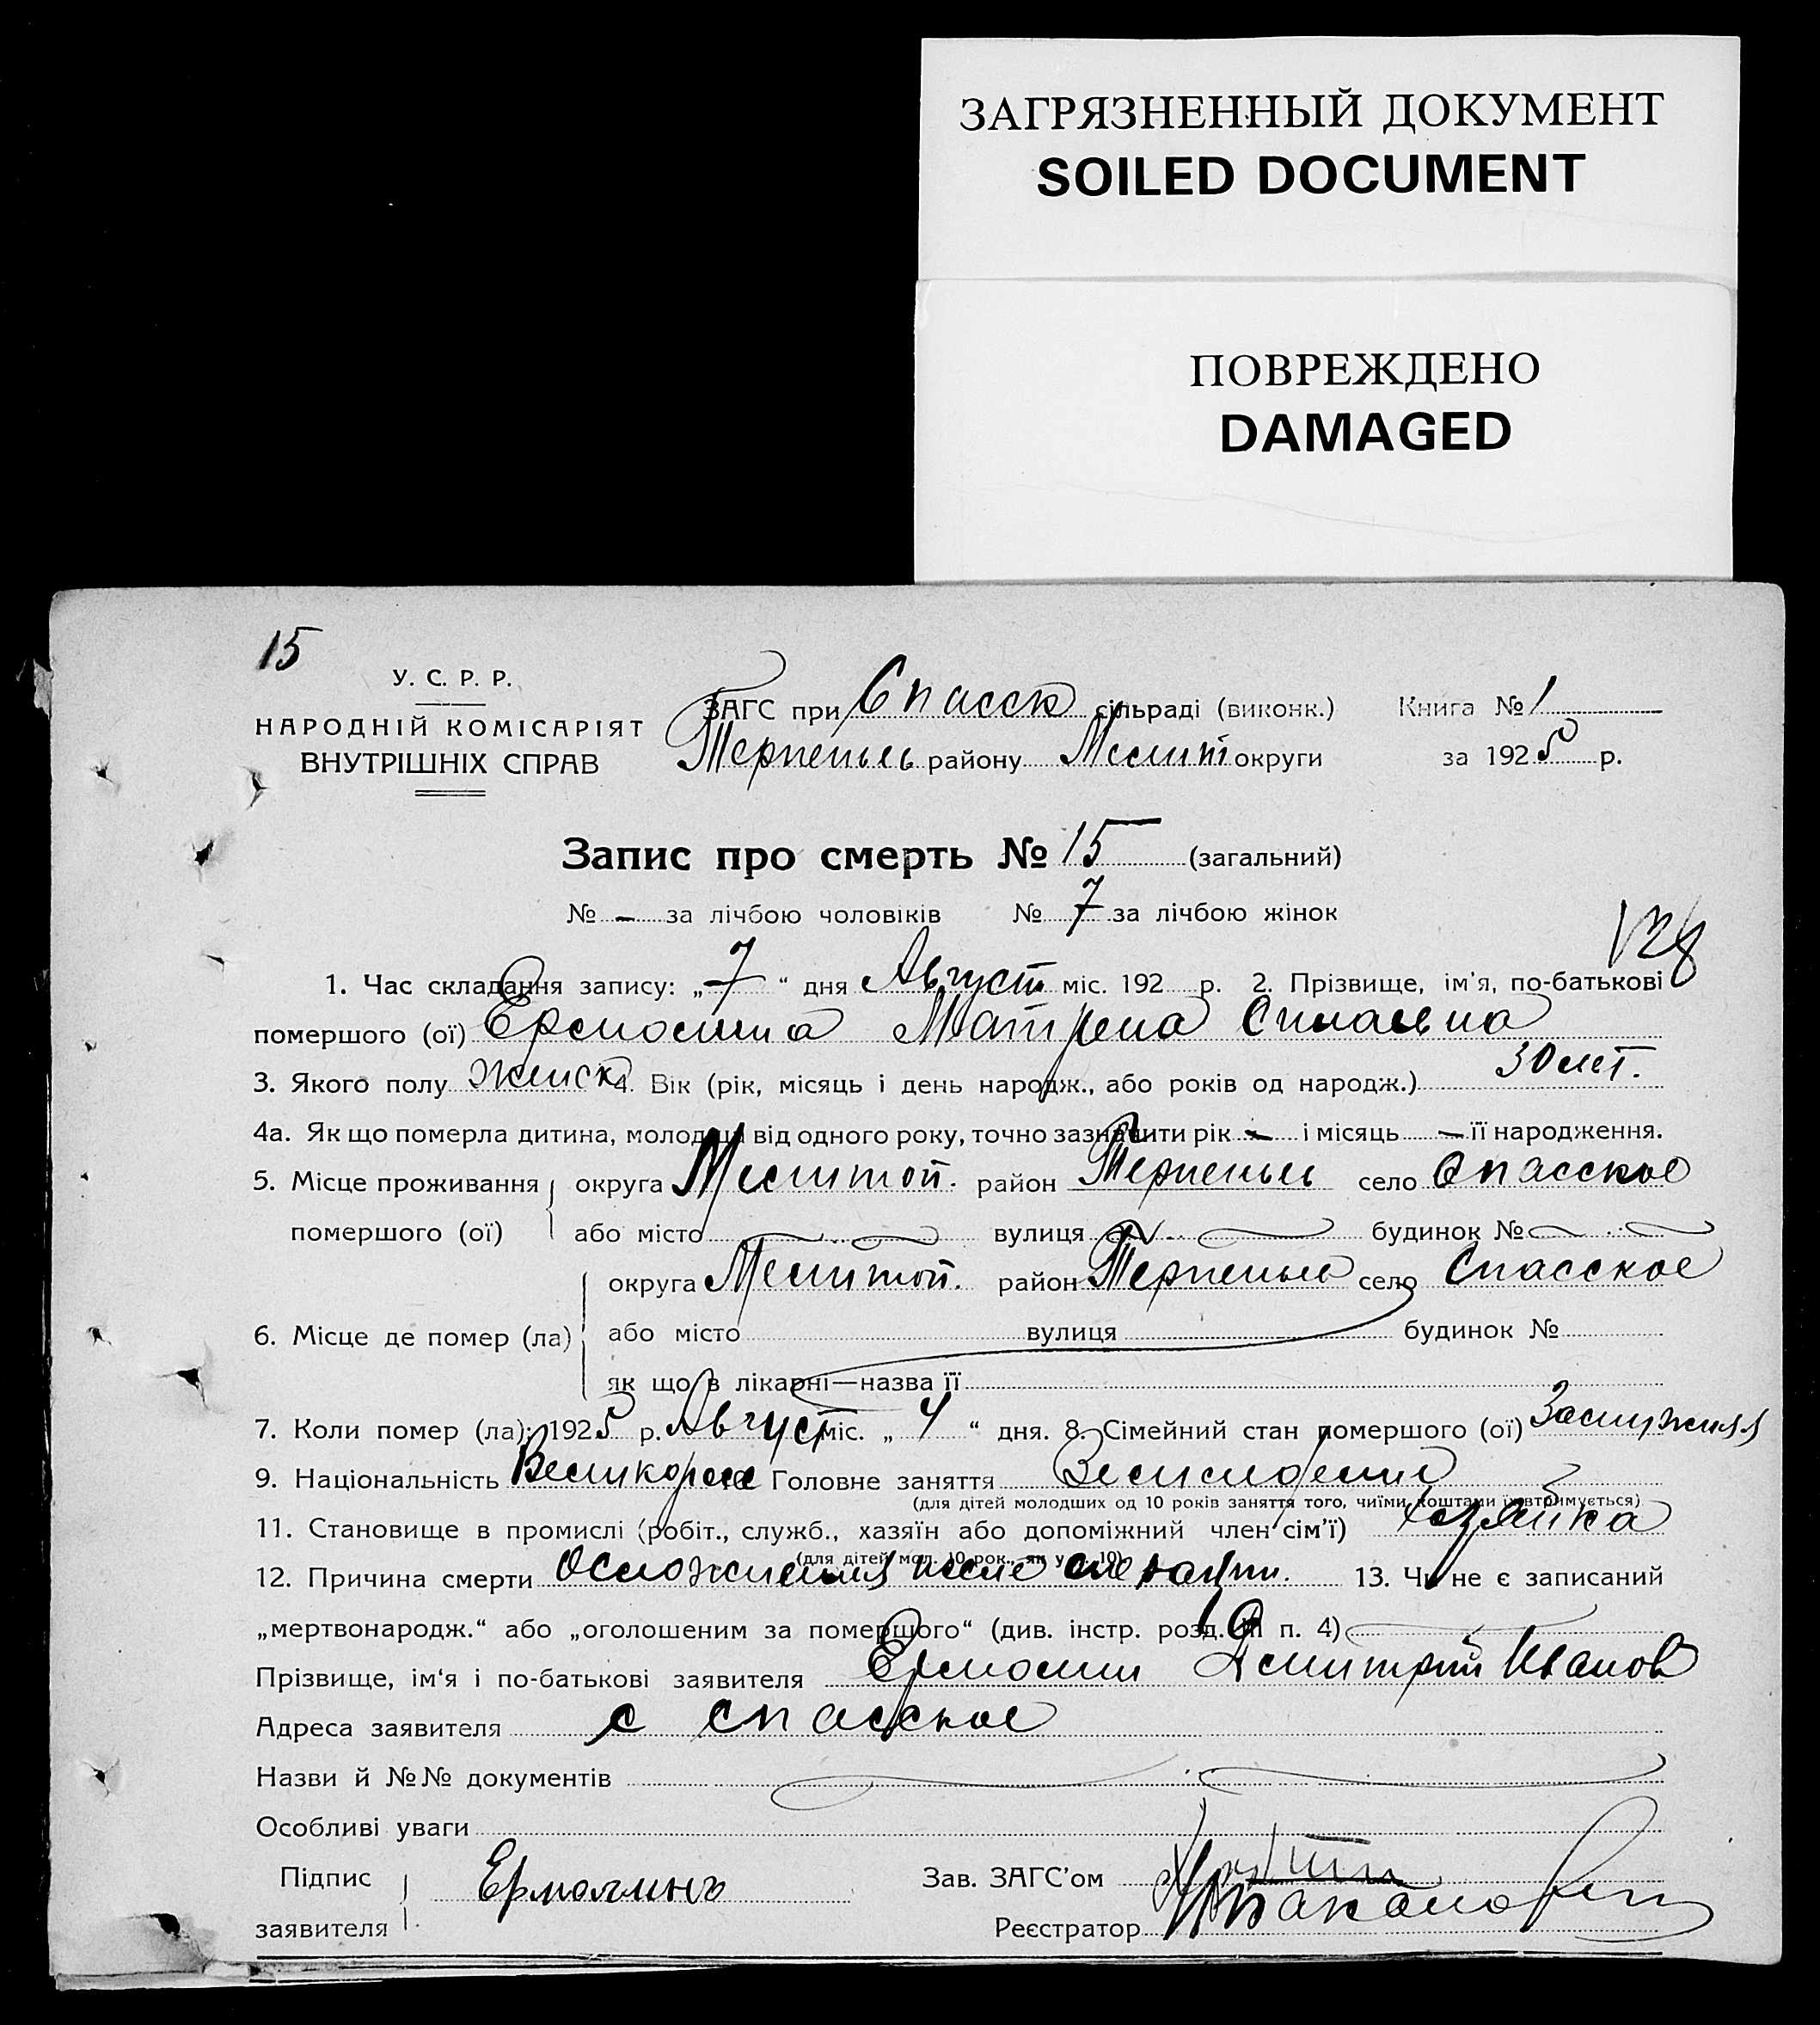 ЗАГРЯЗНЕННЫЙ ДОКУМЕНТ
SOILED DOCUMENT
ПОВРЕЖДЕНО
DAMAGED
15
У. С. Р. Р.
НАРОДНІЙ КОМІСАРІЯТ
ВНУТРІШНІХ СПРАВ
ЗАГС при Спасск сільраді (виконк.) Книга № 1
Терпеньев району Мелит округи за 1925 р.
Запис про смерть № 15 (загальний)
№ – за лічбою чоловіків № 7 за лічбою жінок
1. Час складання запису: „7“ дня Август міс. 192 р. 2. Прізвище, ім'я, по-батькові
помершого (ої) Ермолина Матрена
3. Якого полу женск 4. Вік (рік, місяць і день народж., або років од народж.) 30 лет.
4а. Як що померла дитина, молодша від одного року, точно зазначити рік – і місяць – її народження.
5. Місце проживання округа Мелитоп. район Терпеньев село Спасское
помершого (ої) або місто вулиця будинок №
округа Мелитоп. район Терпеньев село Спасское
6. Місце де помер (ла) або місто вулиця будинок №
як що в лікарні—назва її
7. Коли помер (ла): 1925 р. Август міс. „4“ дня. 8. Сімейний стан помершого (ої) Замужняя
9. Національність Великорос Головне заняття Земледелие
(для дітей молодших од 10 років заняття того, чиїми коштами їх втримується)
11. Становище в промислі (робіт., служб., хазяїн або допоміжний член сім'ї) хозяйка
(для дітей мол. 10 рок., як у п. 10)
12. Причина смерти Осложнения после операции. 13. Чи не є записаний
„мертвонародж.“ або „оголошеним за помершого“ (див. інстр. розд. п. 4)
Прізвище, ім'я і по-батькові заявителя Ермолин Дмитрий Иванов
Адреса заявителя с Спасское
Назви й №№ документів
Особливі уваги
Підпис заявителя Ермолинъ Зав. ЗАГС'ом
Реєстратор